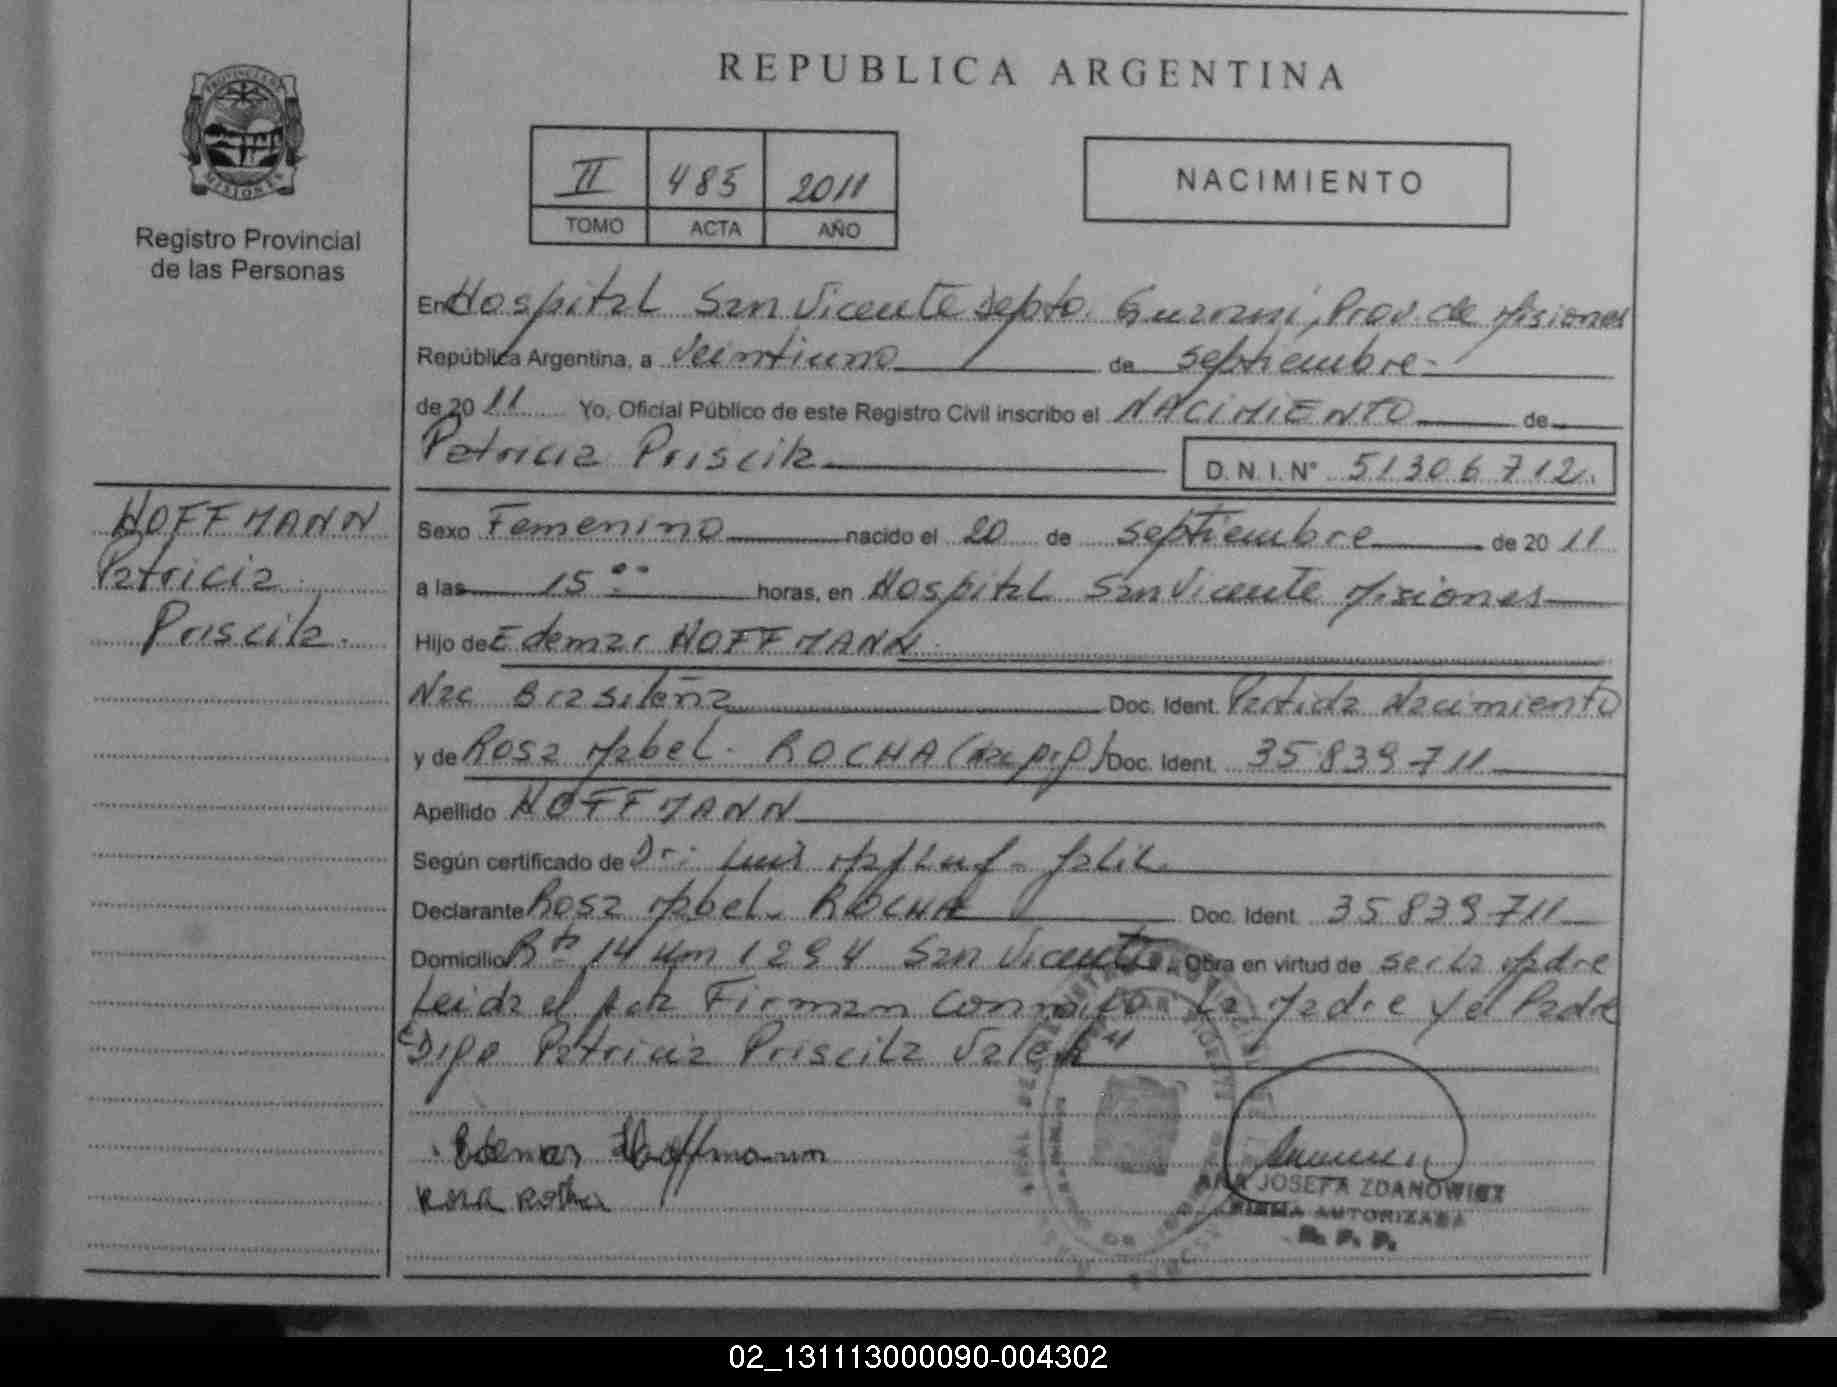 REPUBLICA ARGENTINA
PROVINCIA DE
MISIONES
Registro Provincial
de las Personas
II 485 2011
TOMO ACTA AÑO
NACIMIENTO
En Hospital San Vicente Depto. Guarani, Prov. de Misiones
República Argentina, a veintiuno de septiembre
de 20 11 Yo, Oficial Público de este Registro Civil inscribo el NACIMIENTO de
Patricia Priscila D.N.I. N° 51306712
HOFFMANN
Patricia
Priscila.
Sexo Femenino nacido el 20 de septiembre de 20 11
a las 15:00 horas, en Hospital San Vicente Misiones
Hijo de Edemar HOFFMANN
Nac Brasileña Doc. Ident. Partida Nacimiento
y de Rosa Mabel ROCHA Doc. Ident. 35839711
Apellido HOFFMANN
Según certificado de Dr: Luis
Declarante Rosa Mabel ROCHA Doc. Ident. 35839711
Domicilio Rta 14 Km 1294 San Vicente Obra en virtud de ser la Madre
Leida el Acta Firman Conmigo La Madre y el Padre
"Digo Patricia Priscila Vale"
Edemar Hoffmann
Rosa Rocha
ANA JOSEFA ZDANOWICZ
FIRMA AUTORIZADA
R. P. P.
02_131113000090-004302